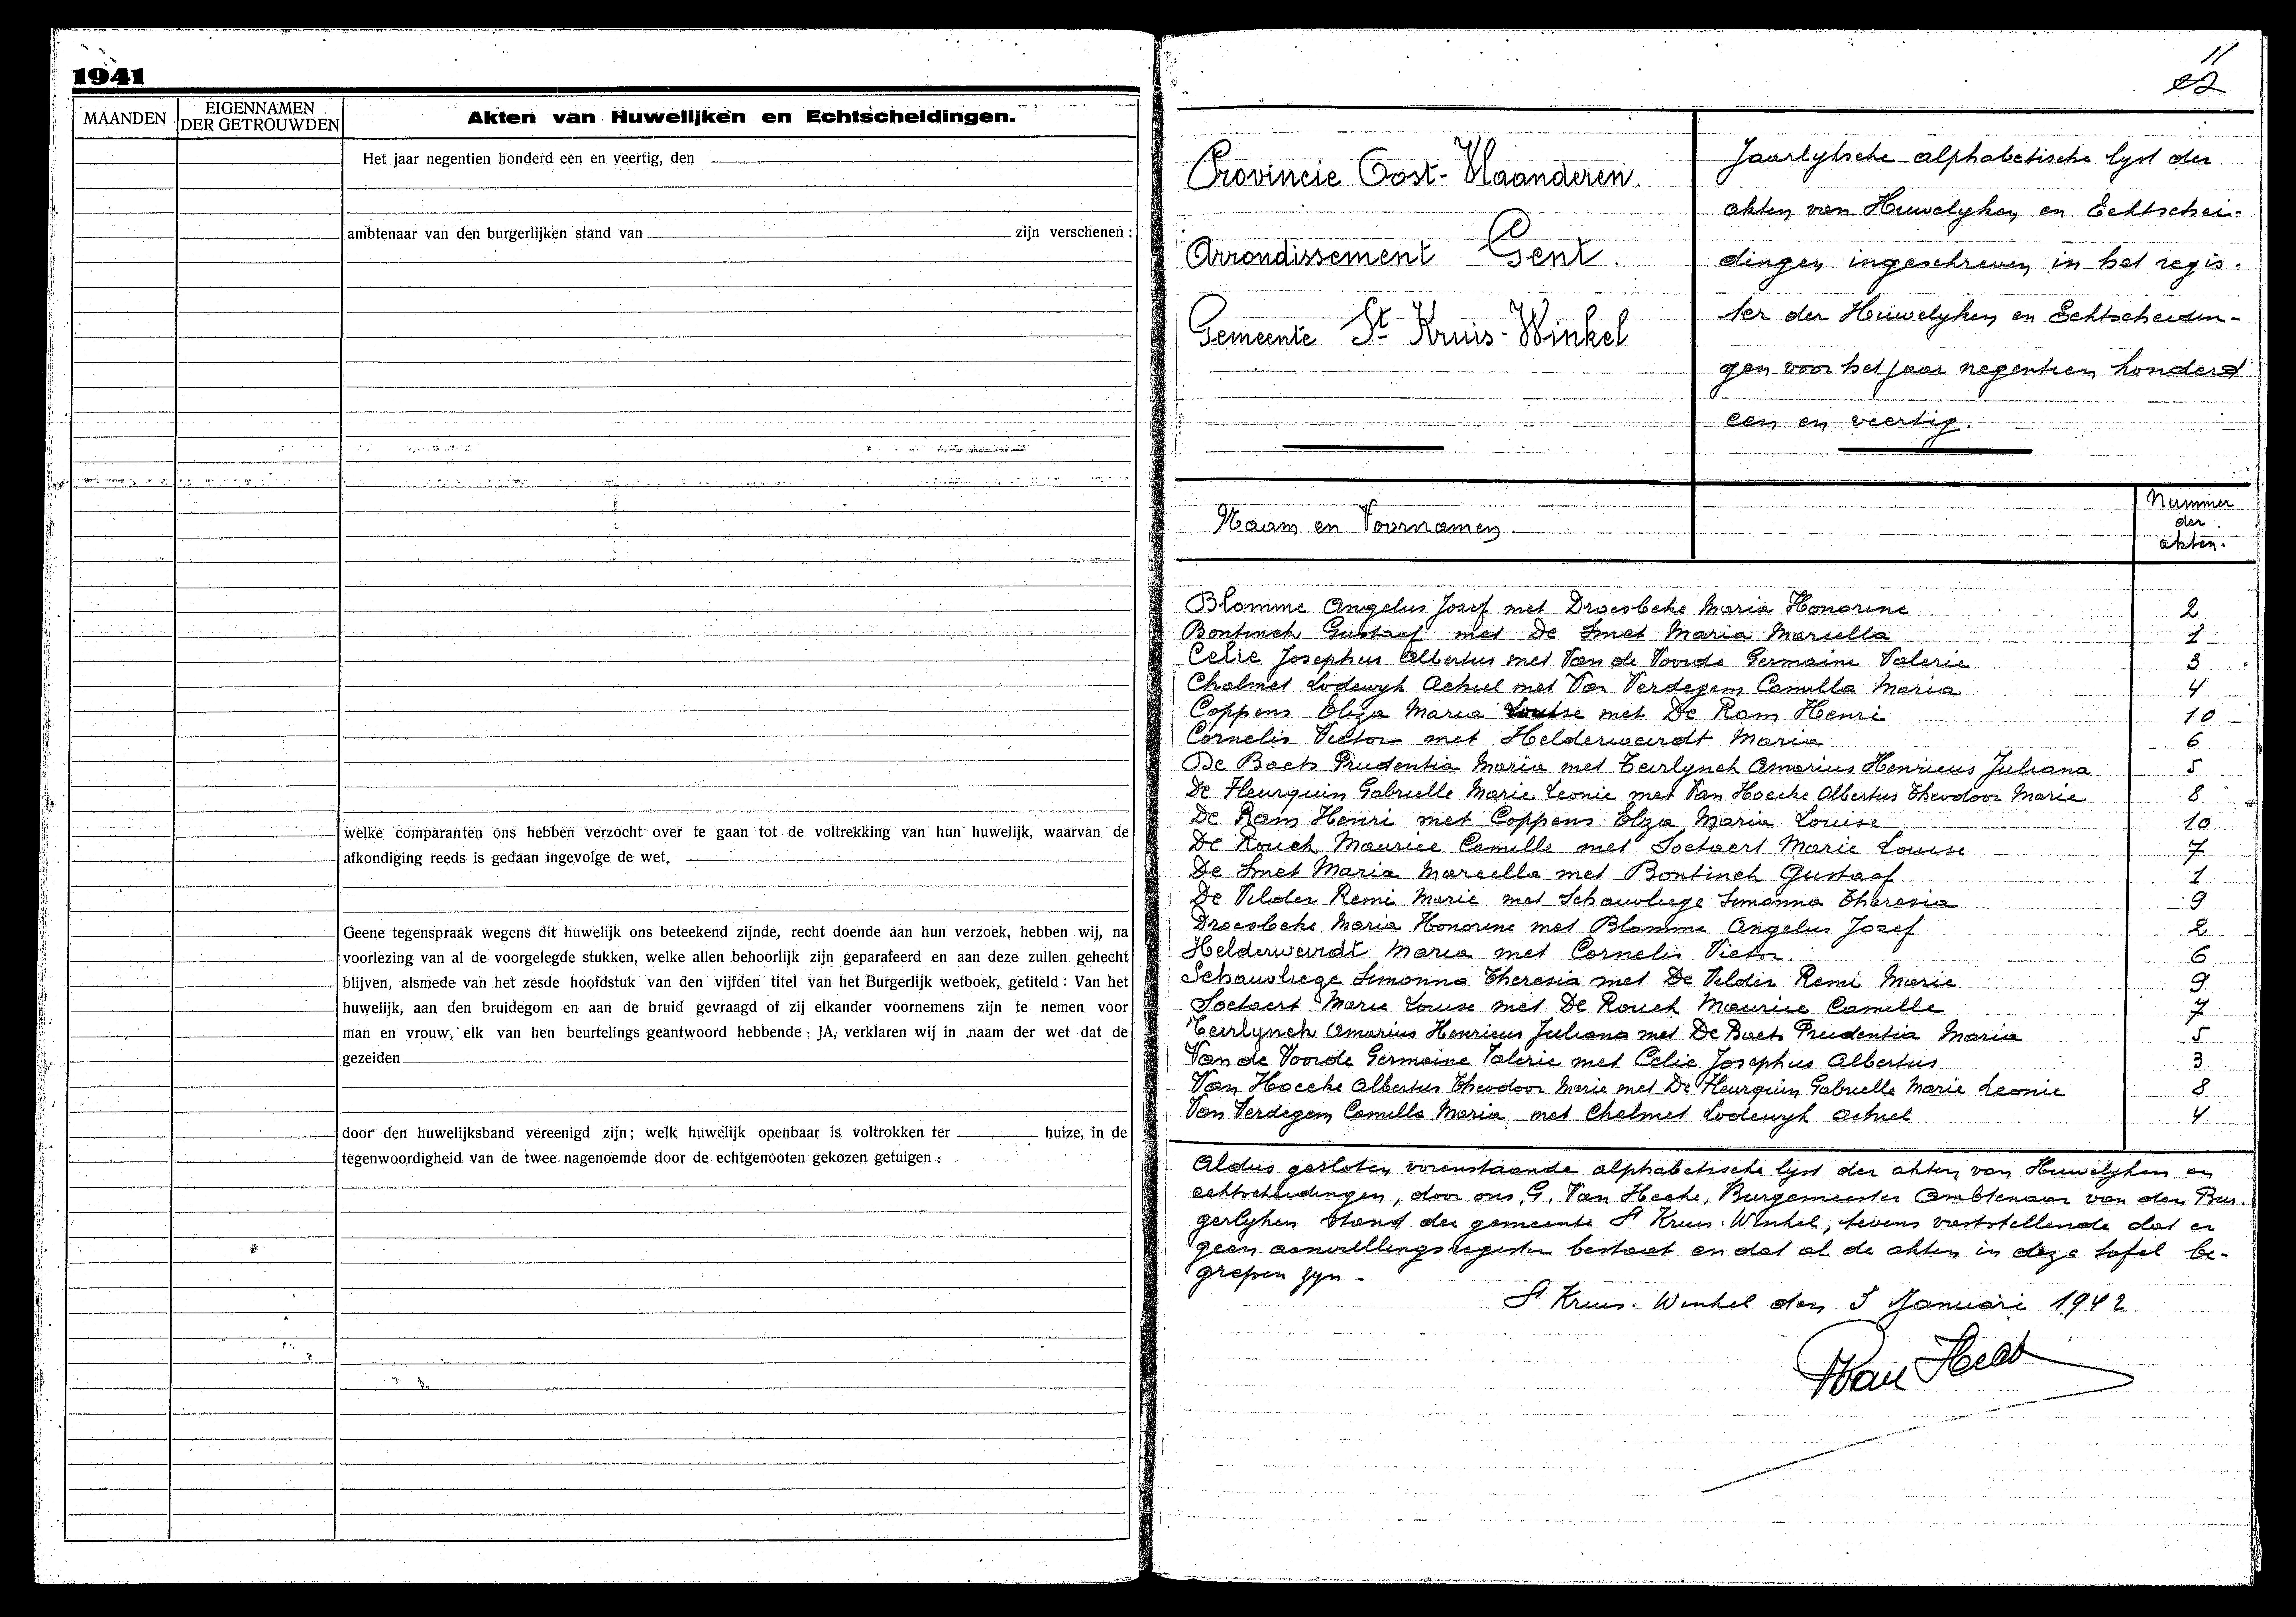 1941
MAANDEN
EIGENNAMEN
DER GETROUWDEN
Akten van Huwelijken en Echtscheidingen.
Het jaar negentien honderd een en veertig, den
ambtenaar van den burgerlijken stand van zijn verschenen :
welke comparanten ons hebben verzocht over te gaan tot de voltrekking van hun huwelijk, waarvan de
afkondiging reeds is gedaan ingevolge de wet,
Geene tegenspraak wegens dit huwelijk ons beteekend zijnde, recht doende aan hun verzoek, hebben wij, na
voorlezing van al de voorgelegde stukken, welke allen behoorlijk zijn geparafeerd en aan deze zullen gehecht
blijven, alsmede van het zesde hoofdstuk van den vijfden titel van het Burgerlijk wetboek, getiteld : Van het
huwelijk, aan den bruidegom en aan de bruid gevraagd of zij elkander voornemens zijn te nemen voor
man en vrouw, elk van hen beurtelings geantwoord hebbende : JA, verklaren wij in naam der wet dat de
gezeiden
door den huwelijksband vereenigd zijn; welk huwelijk openbaar is voltrokken ter huize, in de
tegenwoordigheid van de twee nagenoemde door de echtgenooten gekozen getuigen :
11
Provincie Oost-Vlaanderen.
Arrondissement Gent.
Gemeente St Kruis-Winkel
Jaarlyksche alphabetische lyst der
akten van Huwelyken en Echtschei-
dingen ingeschreven in het regis-
ter der Huwelyken en Echtscheidin-
gen voor het jaar negentien honderd
een en veertig.
Naam en Voornamen
Nummer
der
akten.
Blomme Angelus Josef met Droesbeke Maria Honorine 2
Bontinck Gustaaf met De Smet Maria Marcella 1
Celie Josephus Albertus met Van de Voorde Germaine Valerie 3
Chalmet Lodewyk Achiel met Van Verdegem Camilla Maria 4
Coppens Elza Maria Louise met De Ram Henri 10
Cornelis Victor met Helderweirdt Maria 6
De Baets Prudentia Maria met Teirlynck Amarius Henricus Juliana 5
De Fleurquin Gabrielle Marie Leonie met Van Hoecke Albertus Theodoor Marie 8
De Ram Henri met Coppens Elza Maria Louise 10
De Rouck Maurice Camille met Soetaert Marie Louise 7
De Smet Maria Marcella met Bontinck Gustaaf 1
De Vilder Remi Marie met Schauvliege Simonna Theresia 9
Droesbeke Maria Honorine met Blomme Angelus Jozef 2
Helderweirdt Maria met Cornelis Victor. 6
Schauvliege Simonna Theresia met De Vilder Remi Marie 9
Soetaert Marie Louise met De Rouck Maurice Camille 7
Teirlynck Amarius Henricus Juliana met De Baets Prudentia Maria 5
Van de Voorde Germaine Valerie met Celie Josephus Albertus 3
Van Hoecke Albertus Theodoor Marie met De Fleurquin Gabrielle Marie Leonie 8
Van Verdegem Camilla Maria met Chalmet Lodewyk Achiel 4
Aldus gesloten vorenstaande alphabetische lyst der akten van Huwelyken en
echtscheidingen, door ons, G. Van Hecke, Burgemeester Ambtenaar van den Bur-
gerlyken Stand der gemeente St Kruis-Winkel, tevens vaststellende dat er
geen aanvullingsregister bestaat en dat al de akten in deze tafel be-
grepen zyn.
St Kruis-Winkel den 5 Januari 1942